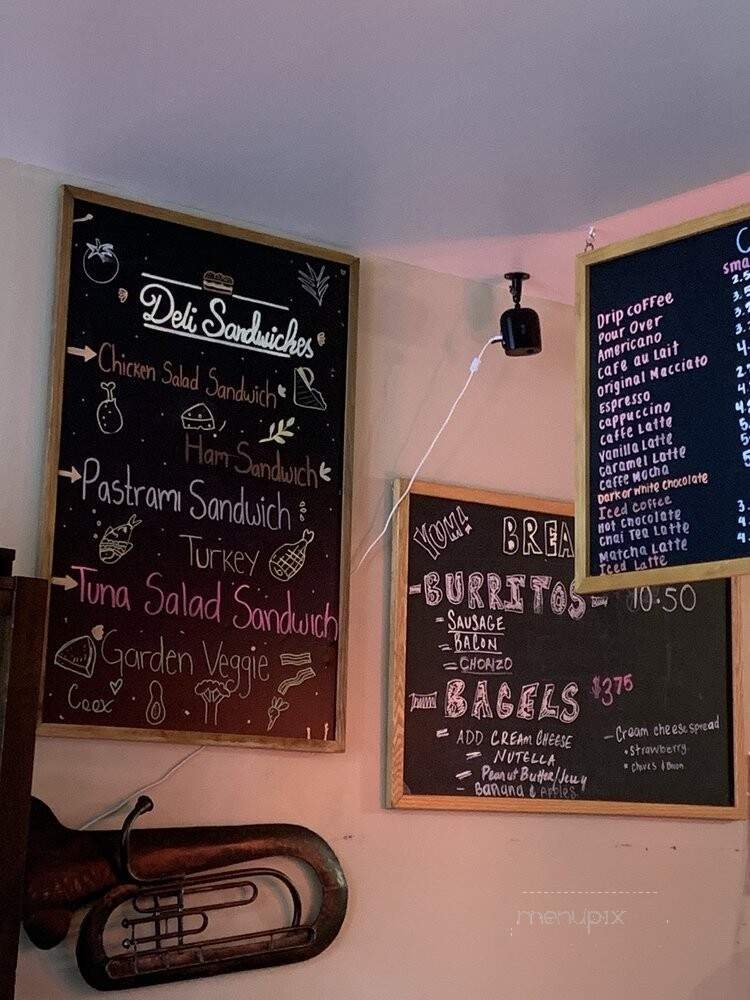 Deli Sandwiches
Chicken Salad Sandwich
Ham Sandwich
Pastrami Sandwich
Turkey
Tuna Salad Sandwich
Garden Veggie
YUM!
BREA
- BURRITOS 10.50
- SAUSAGE
- BACON
- CHORIZO
BAGELS $3.75
ADD CREAM CHEESE
- NUTELLA
- Peanut Butter/Jelly
- Banana & Apples
- Cream cheese spread
• Strawberry
• Chives & Onion
C
sma
Drip coffee 2.5
Pour Over 3.5
Americano
Cafe au Lait
Original Macciato
Espresso
Cappuccino
Caffe Latte
Vanilla Latte
Caramel Latte
Caffe Mocha
Dark or White Chocolate
Iced Coffee
Hot Chocolate
Chai Tea Latte
Matcha Latte
Iced Latte
menupix